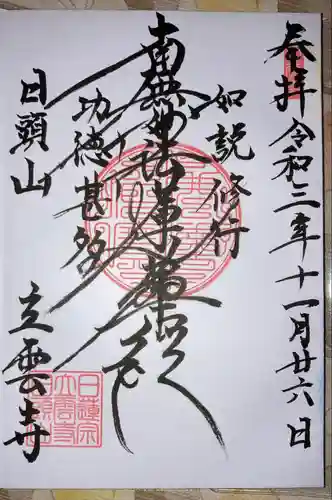 奉拝 令和三年十一月廿六日
如説修行
南無妙法蓮華経
功徳甚多
日頭山 立雲寺
日蓮宗